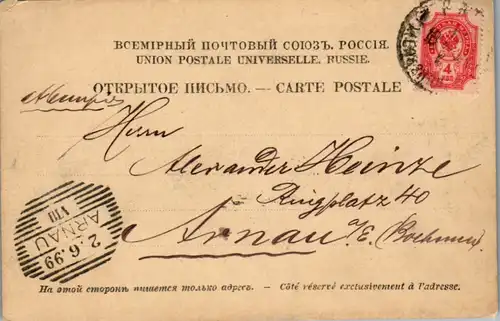 ВСЕМІРНЫЙ ПОЧТОВЫЙ СОЮЗЪ. РОССІЯ.
UNION POSTALE UNIVERSELLE. RUSSIE.
ОТКРЫТОЕ ПИСЬМО. — CARTE POSTALE
4
Herrn
Alexander Heinze
Ringplatz 40
Arnau a/E. (Boehmen)
ARNAU
2.6.99
VIII
На этой сторонѣ пишется только адресъ. — Côté réservé exclusivement à l'adresse.